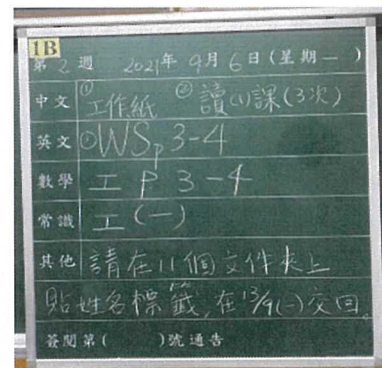 1B
第2週 2021年9月6日(星期一)
中文 ①工作紙 ②讀(1)課(3次)
英文 ①WSp3-4
數學 工P3-4
常識 工(一)
其他 請在11個文件夾上
貼姓名標籤,在13/9(一)交回。
簽閱第( )號通告